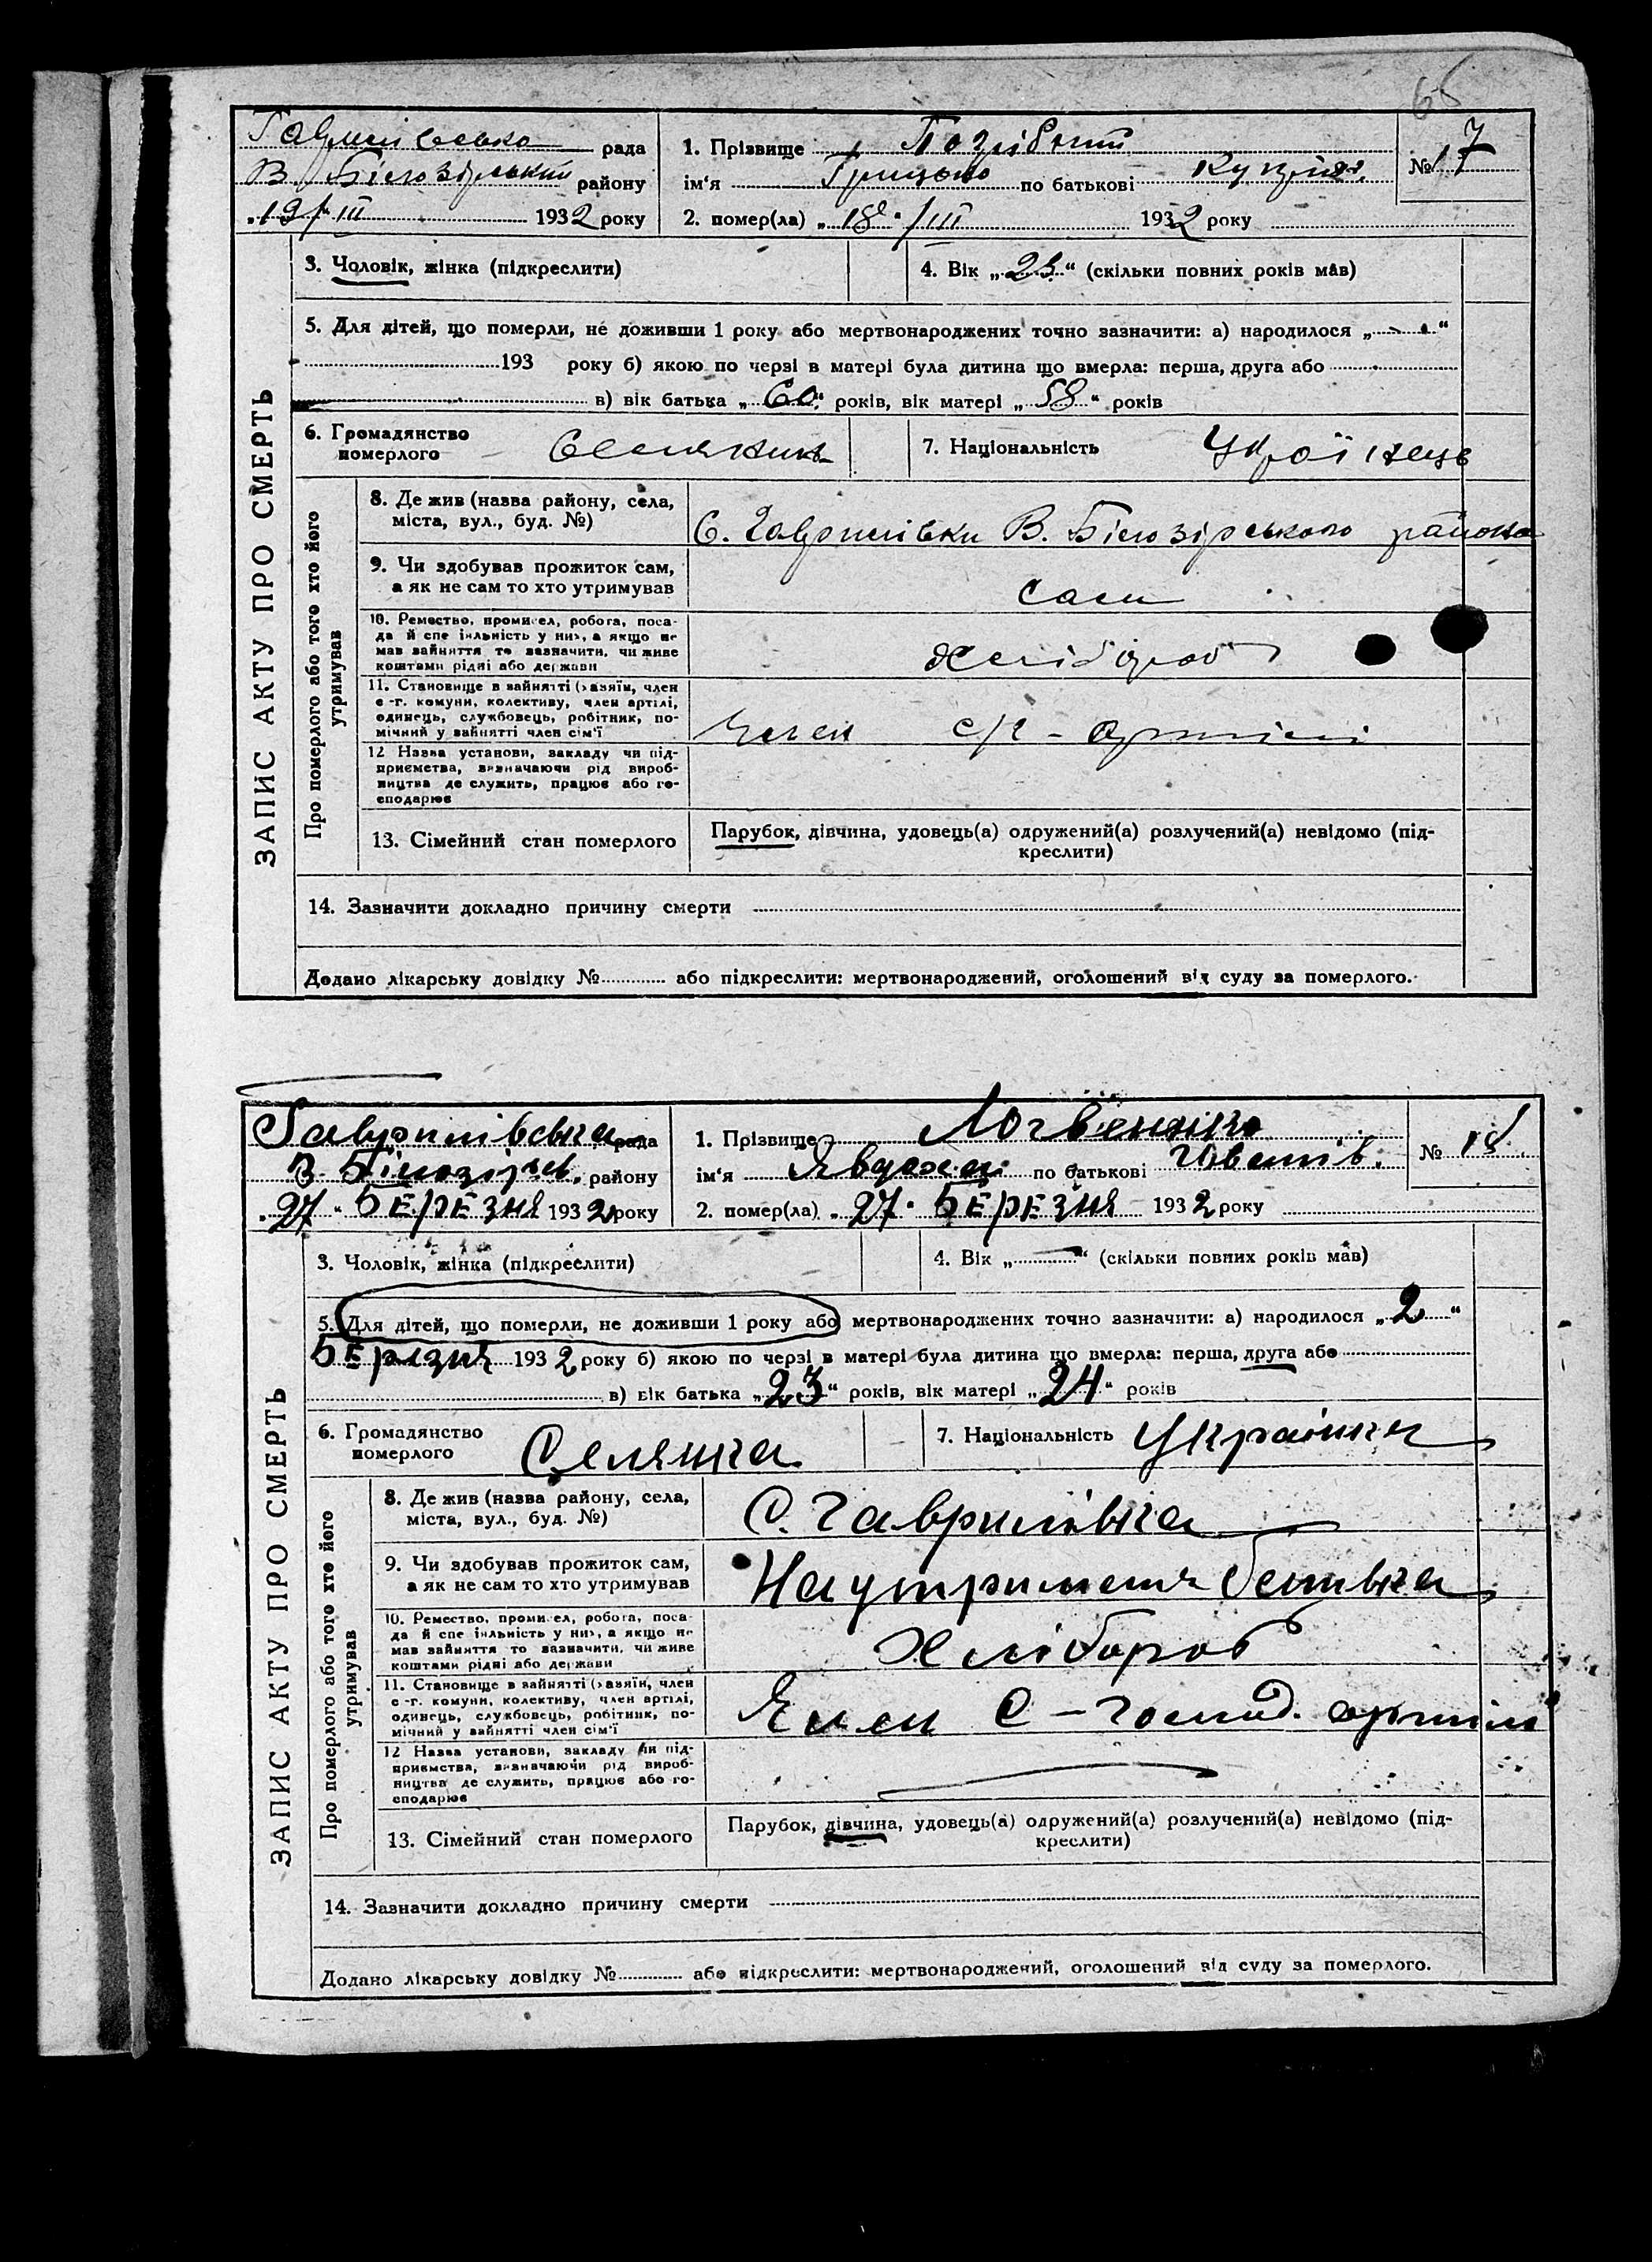 65
рада
1. Прізвище
№ 17
В. Білозірський району
ім'я Грицько по батькові
„19“/III 1932 року
2. помер(ла) „18“/III 1932 року
ЗАПИС АКТУ ПРО СМЕРТЬ
3. Чоловік, жінка (підкреслити)
4. Вік „23“ (скільки повних років мав)
5. Для дітей, що померли, не доживши 1 року або мертвонароджених точно зазначити: а) народилося „ “
193 року б) якою по черзі в матері була дитина що вмерла: перша, друга або
в) вік батька „60“ років, вік матері „58“ років
6. Громадянство
померлого
Селянин
7. Національність Українець
Про померлого або того хто його
утримував
8. Де жив (назва району, села,
міста, вул., буд. №)
С. Гаврилівки В. Білозірського района
9. Чи здобував прожиток сам,
а як не сам то хто утримував
Сам
10. Ремество, промисел, робота, поса-
да й спеціяльність у них, а якщо не
мав зайняття то зазначити, чи живе
коштами рідні або держави
Хлібороб
11. Становище в зайнятті (хазяїн, член
с-г. комуни, колективу, член артілі,
одинець, службовець, робітник, по-
мічний у зайнятті член сім'ї
Член с/г - артілі
12 Назва установи, закладу чи під-
приємства, визначаючи рід вироб-
ництва де служить, працює або го-
сподарює
13. Сімейний стан померлого
Парубок, дівчина, удовець(а) одружений(а) розлучений(а) невідомо (під-
креслити)
14. Зазначити докладно причину смерти
Додано лікарську довідку № або підкреслити: мертвонароджений, оголошений від суду за померлого.
Гаврилівська рада
1. Прізвище Логвененко
№ 18.
В. Білозірськ. району
ім'я Явдоха по батькові Іванів.
„27“ Березня 1932 року
2. помер(ла) „27“ Березня 1932 року
ЗАПИС АКТУ ПРО СМЕРТЬ
3. Чоловік, жінка (підкреслити)
4. Вік „—“ (скільки повних років мав)
5. Для дітей, що померли, не доживши 1 року або мертвонароджених точно зазначити: а) народилося „2“
Березня 1932 року б) якою по черзі в матері була дитина що вмерла: перша, друга або
в) вік батька „23“ років, вік матері „24“ років
6. Громадянство
померлого
Селянка
7. Національність Українка
Про померлого або того хто його
утримував
8. Де жив (назва району, села,
міста, вул., буд. №)
С. Гаврилівка
9. Чи здобував прожиток сам,
а як не сам то хто утримував
На утриманя батька
10. Ремество, промисел, робота, поса-
да й спеціяльність у них, а якщо не
мав зайняття то зазначити, чи живе
коштами рідні або держави
Хлібороб
11. Становище в зайнятті (хазяїн, член
с-г. комуни, колективу, член артілі,
одинець, службовець, робітник, по-
мічний у зайнятті член сім'ї
Член С-Господ. артіли
12 Назва установи, закладу чи під-
приємства, визначаючи рід вироб-
ництва де служить, працює або го-
сподарює
13. Сімейний стан померлого
Парубок, дівчина, удовець(а) одружений(а) розлучений(а) невідомо (під-
креслити)
14. Зазначити докладно причину смерти
Додано лікарську довідку № або підкреслити: мертвонароджений, оголошений від суду за померлого.